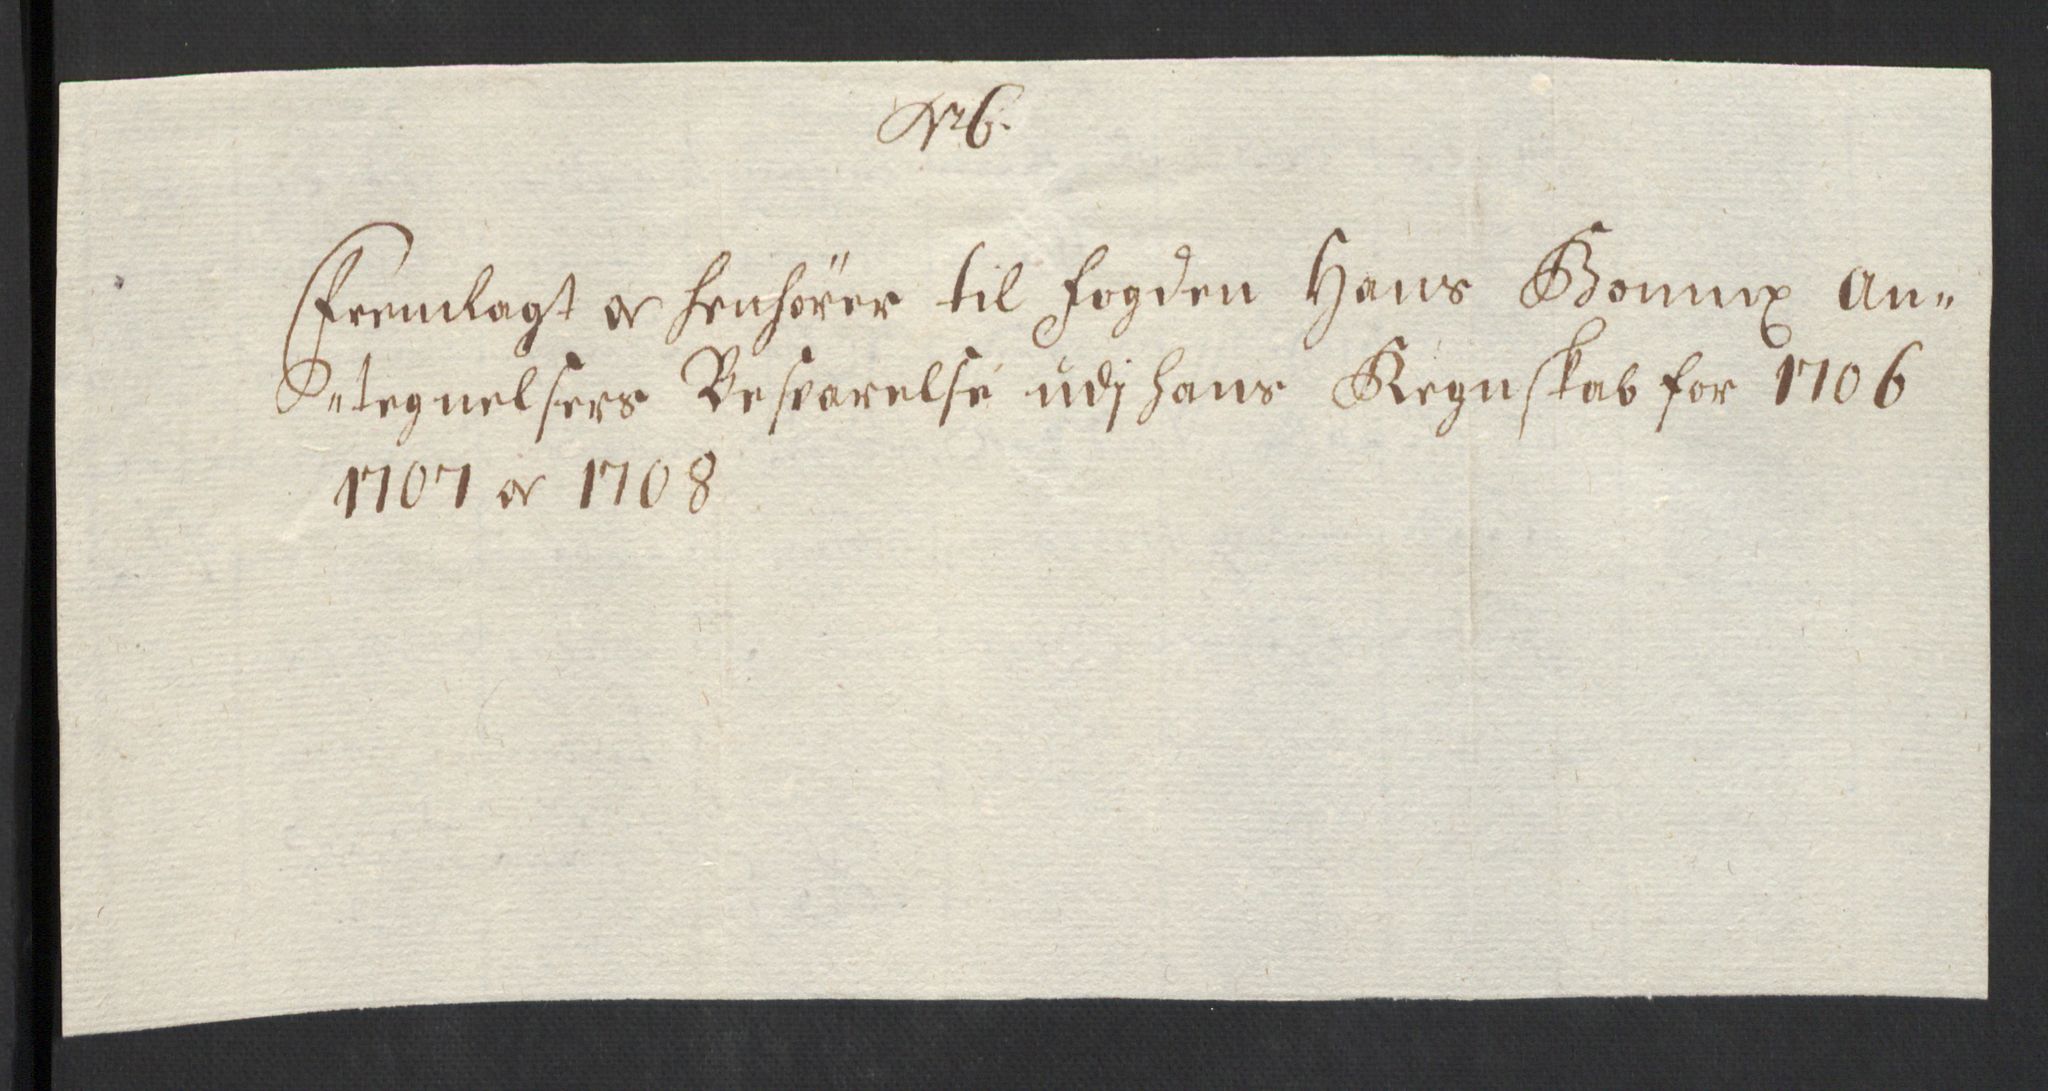 No 6.
Fremlagt og henhörer til fogden Hans Bonnix An-
tegnelsers Besvarelse udj hans Regnskab for 1706
1707 og 1708